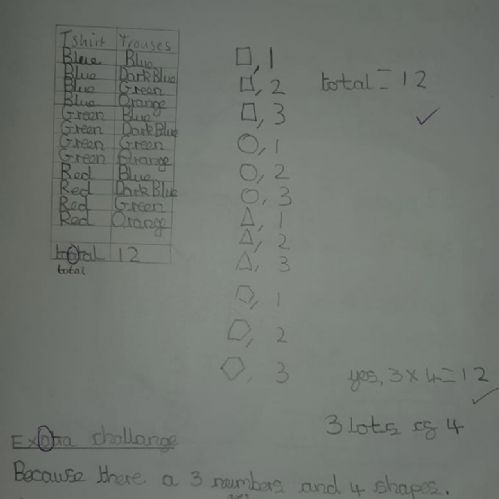 Tshirt Trouses
Blue Blue
Blue Dark Blue
Blue Green
Blue Orange
Green Blue
Green Dark Blue
Green Green
Green Orange
Red Blue
Red Dark Blue
Red Green
Red Orange
total 12
total
□, 1
□, 2
□, 3
○, 1
○, 2
○, 3
△, 1
△, 2
△, 3
⬠, 1
⬠, 2
⬠, 3
total = 12
yes, 3 x 4 = 12
3 lots of 4
Extra challange
Because there a 3 numbers and 4 shapes.